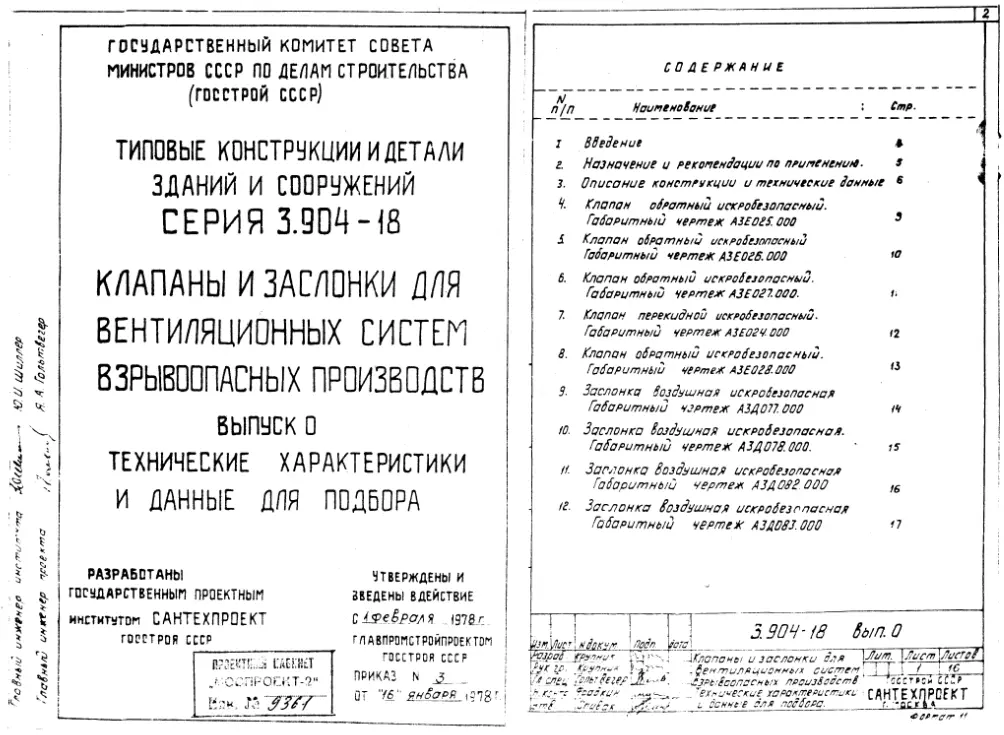 ГОСУДАРСТВЕННЫЙ КОМИТЕТ СОВЕТА
МИНИСТРОВ СССР ПО ДЕЛАМ СТРОИТЕЛЬСТВА
(ГОССТРОЙ СССР)
ТИПОВЫЕ КОНСТРУКЦИИ И ДЕТАЛИ
ЗДАНИЙ И СООРУЖЕНИЙ
СЕРИЯ 3.904-18
КЛАПАНЫ И ЗАСЛОНКИ ДЛЯ
ВЕНТИЛЯЦИОННЫХ СИСТЕМ
ВЗРЫВООПАСНЫХ ПРОИЗВОДСТВ
ВЫПУСК 0
ТЕХНИЧЕСКИЕ ХАРАКТЕРИСТИКИ
И ДАННЫЕ ДЛЯ ПОДБОРА
РАЗРАБОТАНЫ
ГОСУДАРСТВЕННЫМ ПРОЕКТНЫМ
ИНСТИТУТОМ САНТЕХПРОЕКТ
ГОССТРОЯ СССР
УТВЕРЖДЕНЫ И
ВВЕДЕНЫ В ДЕЙСТВИЕ
С 1 февраля 1978 г.
ГЛАВПРОМСТРОЙПРОЕКТОМ
ГОССТРОЯ СССР
ПРИКАЗ N 3
ОТ "16" января 1978 г
ПРОЕКТНЫЙ КАБИНЕТ
"МОСПРОЕКТ-2"
Инв. № 9361
Главный инженер института Ю.И. Шиллер
Главный инженер проекта Я.А. Гольтвегер
2
СОДЕРЖАНИЕ
N п/п Наименование : Стр.
1 Введение
2. Назначение и рекомендации по применению. 5
3. Описание конструкции и технические данные 6
4. Клапан обратный искробезопасный.
Габаритный чертеж А3Е025.000 9
5. Клапан обратный искробезопасный
Габаритный чертеж А3Е026.000 10
6. Клапан обратный искробезопасный.
Габаритный чертеж А3Е027.000. 11
7. Клапан перекидной искробезопасный.
Габаритный чертеж А3Е024.000 12
8. Клапан обратный искробезопасный.
Габаритный чертеж А3Е028.000 13
9. Заслонка воздушная искробезопасная
Габаритный чертеж АЗД077.000 14
10. Заслонка воздушная искробезопасная.
Габаритный чертеж АЗД078.000. 15
11. Заслонка воздушная искробезопасная
Габаритный чертеж АЗД082.000 16
12. Заслонка воздушная искробезопасная
Габаритный чертеж АЗД083.000 17
3.904-18 вып. 0
Изм Лист №докум. Подп. дата
Разраб Крупник
Рук гр. Крупник
Гл спец Гольтвегер
Н.контр Фрадкин
утв. Спивак
Клапаны и заслонки для
вентиляционных систем
взрывоопасных производств
Технические характеристики
и данные для подбора.
Лит. Лист Листов
1 16
ГОССТРОЙ СССР
САНТЕХПРОЕКТ
г. МОСКВА
Формат 11